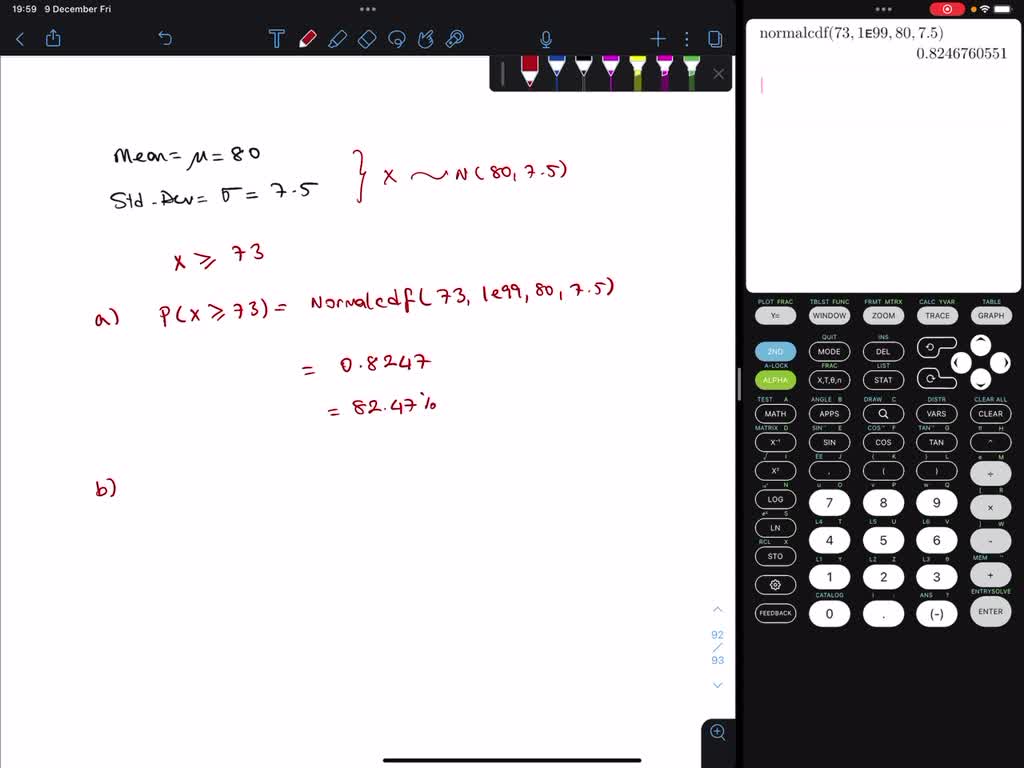 19:59 9 December Fri
Mean = μ = 80
Std. Dev = σ = 7.5
} X ~ N(80, 7.5)
X ≥ 73
a) P(X ≥ 73) = Normalcdf(73, 1e99, 80, 7.5)
= 0.8247
= 82.47%
b)
92
/
93
normalcdf(73, 1E99, 80, 7.5)
0.8246760551
PLOT FRAC TBLST FUNC FRMT MTRX CALC YVAR TABLE
Y= WINDOW ZOOM TRACE GRAPH
QUIT INS
2ND MODE DEL
A-LOCK FRAC LIST
ALPHA X,T,θ,n STAT
TEST A ANGLE B DRAW C DISTR CLEAR ALL
MATH APPS VARS CLEAR
MATRIX D SIN⁻¹ E COS⁻¹ F TAN⁻¹ G π H
X⁻¹ SIN COS TAN ^
√ I EE J { K } L e M
X² , ( ) ÷
10ˣ N u O v P w Q [ R
LOG 7 8 9 ×
eˣ S L4 T L5 U L6 V ] W
LN 4 5 6 -
RCL X L1 Y L2 Z L3 θ MEM "
STO 1 2 3 +
CATALOG i : ANS ? ENTRYSOLVE
FEEDBACK 0 . (-) ENTER